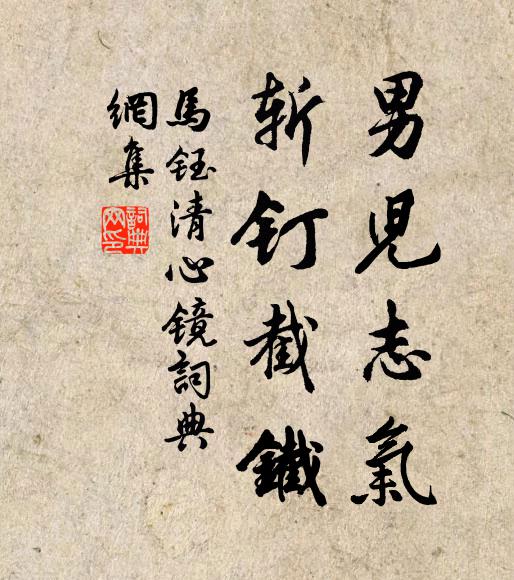 男兒志氣
斬釘截鐵
馬鈺清心镜詞典
網集
詞典網印